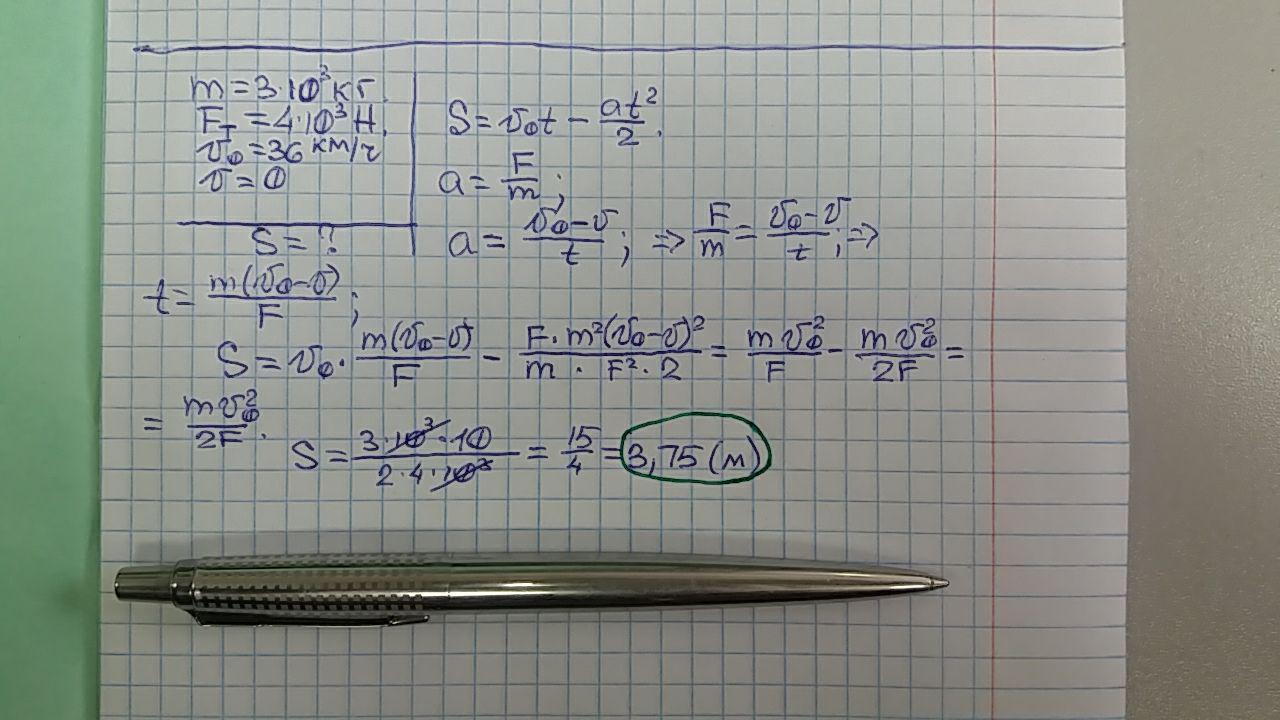 m = 3·10³ кг.
F_T = 4·10³ Н.
v₀ = 36 км/ч
v = 0
S = ?
S = v₀t − at²/2.
a = F/m;
a = (v₀−v)/t; ⇒ F/m = (v₀−v)/t; ⇒
t = m(v₀−v)/F;
S = v₀·m(v₀−v)/F − F·m²(v₀−v)²/(m·F²·2) = mv₀²/F − mv₀²/2F =
= mv₀²/2F.
S = 3·10³·10/(2·4·10³) = 15/4 = 3,75 (м)